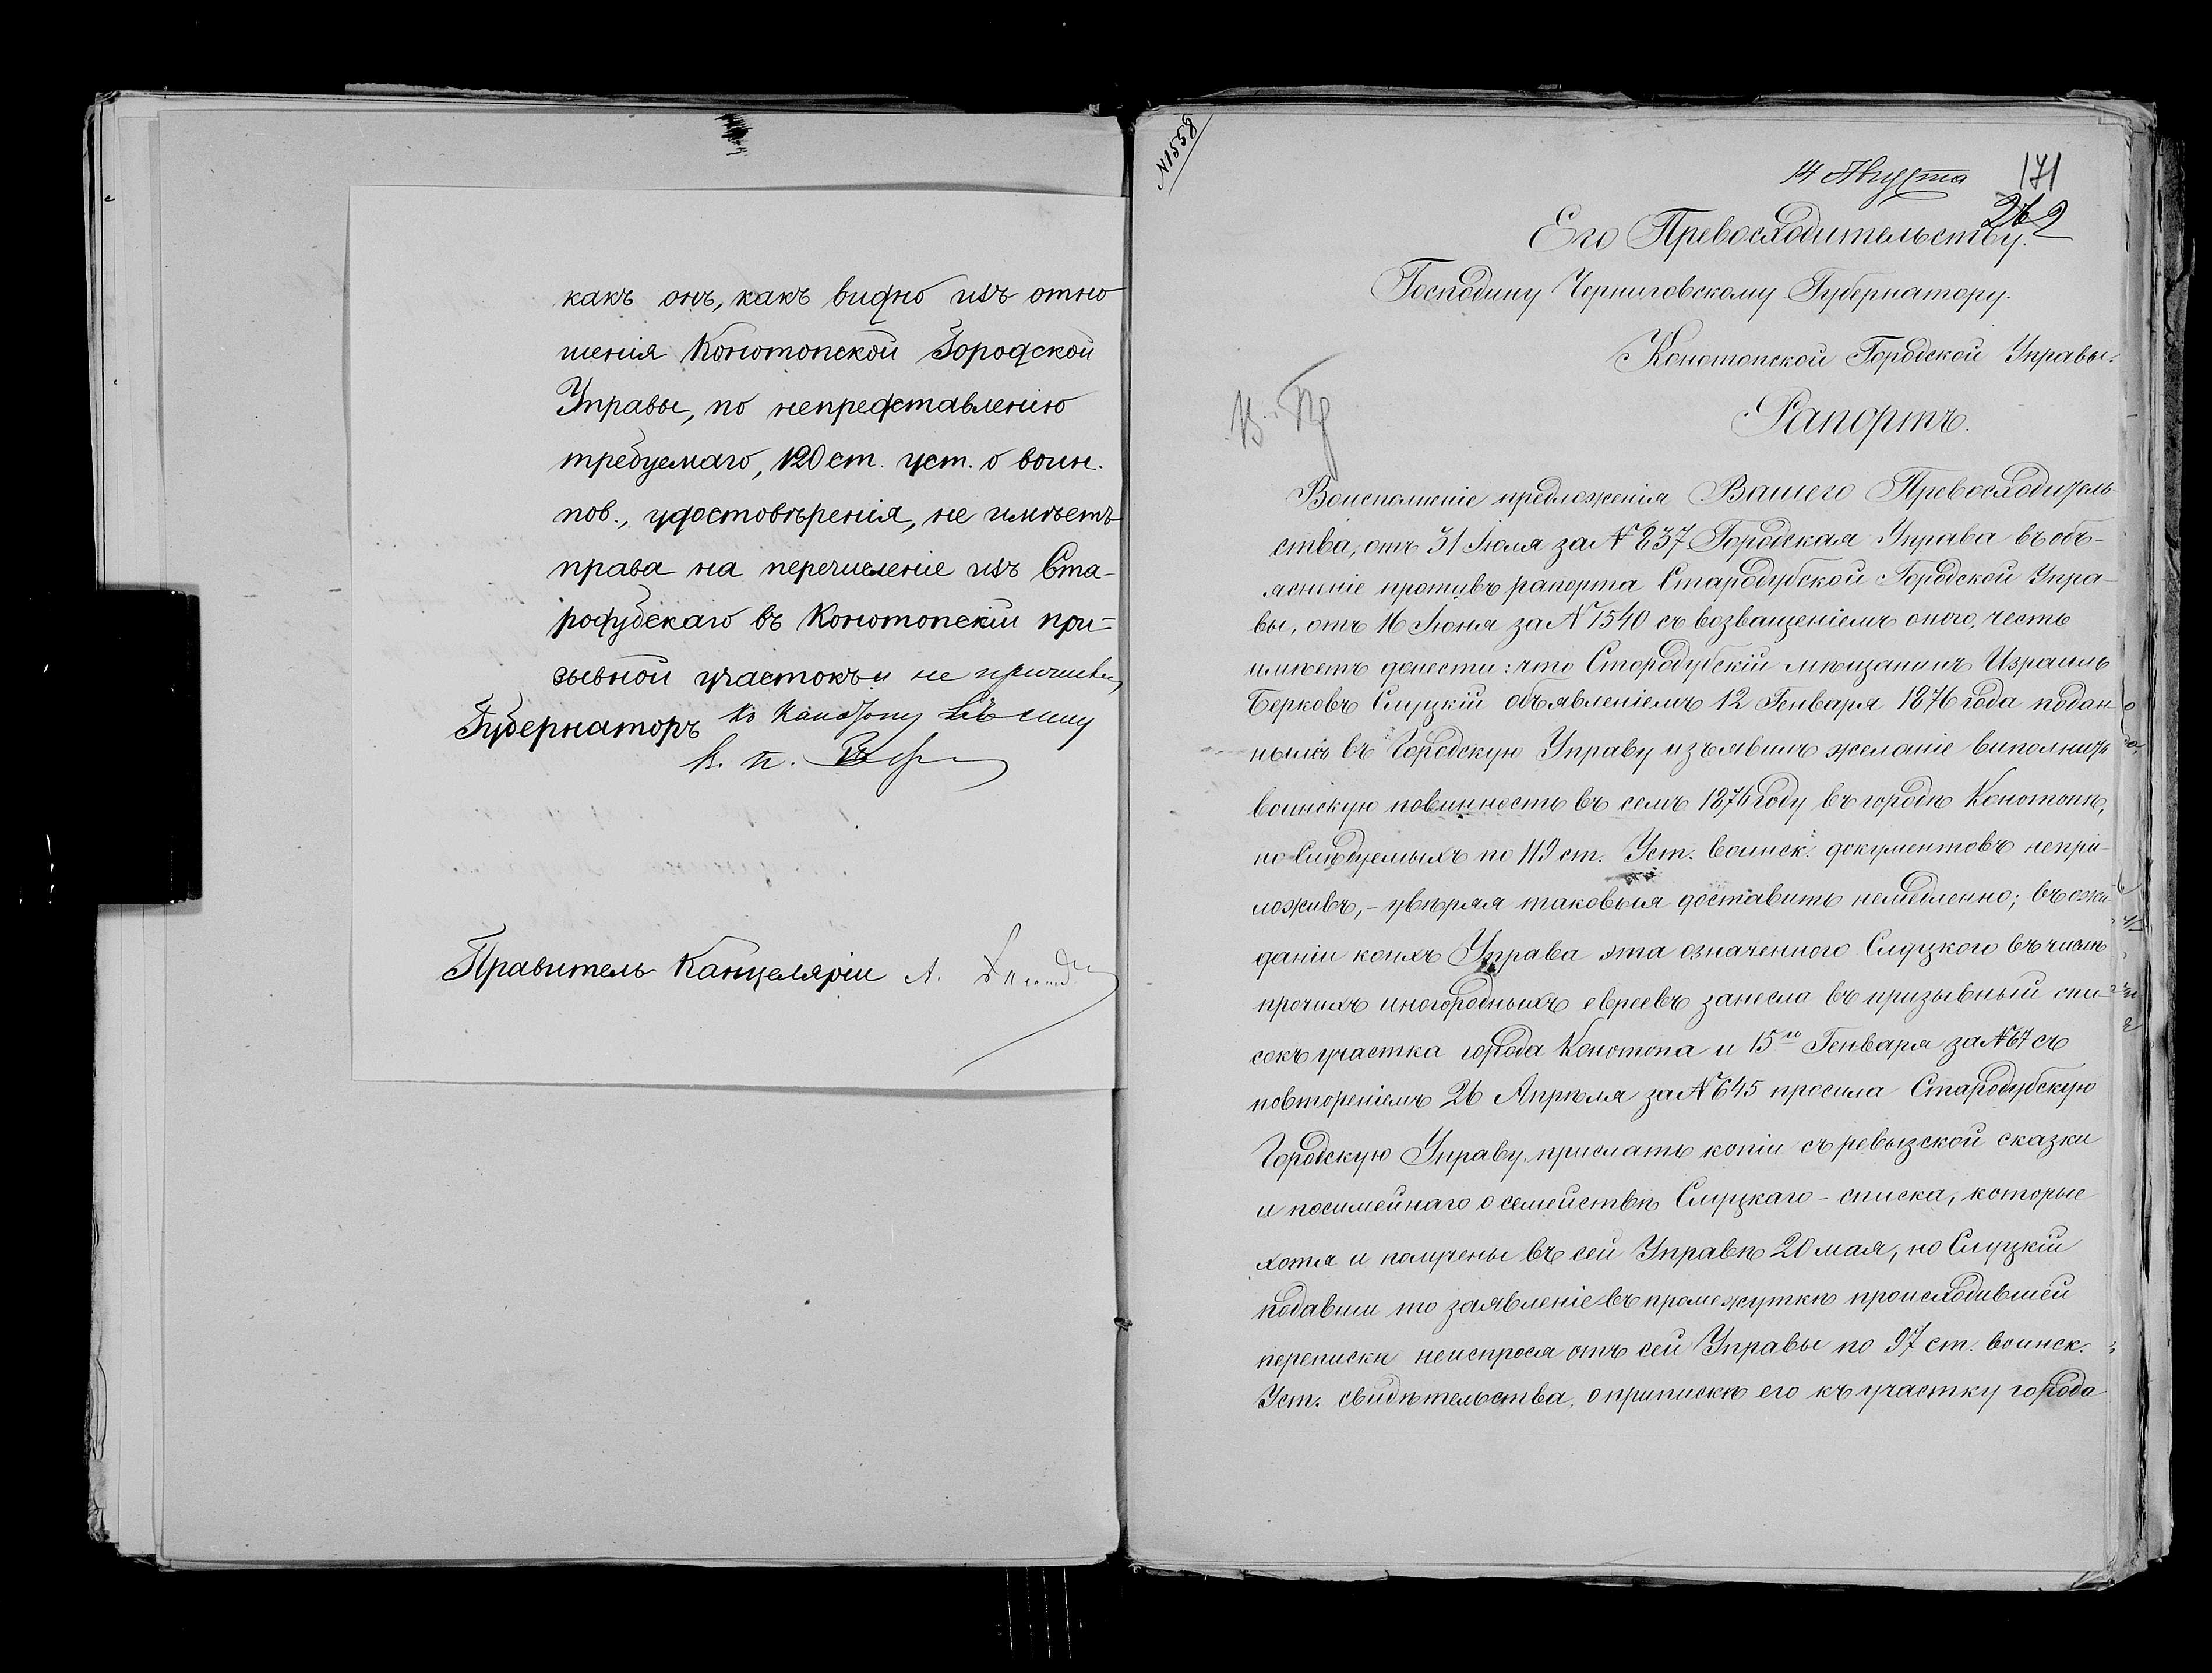 какъ онъ, какъ видно изъ отно
шенія Конотопской Городской
Управы, по непредставленію
требуемаго, 120 ст. уст. о воин.
пов., удостовѣренія, не имѣетъ
права на перечисленіе изъ Ста-
родубскаго въ Конотопскій при-
зывной участокъ и не
Губернаторъ
Правитель Канцеляріи А.
№1558
14 Августа 171
262
Его Превосходительству.
Господину Черниговскому Губернатору.
Конотопской Городской Управы.
Рапортъ.
Воисполненіе предложенія Вашего Превосходитель-
ства, отъ 31 Іюля за № 837 Городская Управа въ объ-
ясненіе противъ рапорта Стародубской Городской Упра-
вы, отъ 16 Іюня за № 1540 съ возвращеніемъ оного, честь
имѣетъ донести: что Стородубскій мѣщанинъ Израиль
Берковъ Слуцкій объявленіемъ 12 Генваря 1876 года подан-
нымъ въ Городскую Управу изъявилъ желаніе виполнить
воинскую повинность въ семъ 1876 году въ городѣ Конотопѣ,
но слѣдуемыхъ по 119 ст. Уст. воинск. документовъ непри-
ложивъ, - увѣряя таковыя доставить немедленно; въ ожи-
даніи коихъ Управа эта означенного Слуцкого въ числѣ
прочихъ иногородныхъ евреевъ занесла въ призывный спи-
сокъ участка города Конотопа и 15го Генваря за № 67 съ
повтореніемъ 26 Апрѣля за № 645 просила Стародубскую
Городскую Управу прислать копіи съ ревызской сказки
и посимейнаго о семействѣ Слуцкаго - списка, которые
хотя и получены въ сей Управѣ 20 мая, но Слуцкій
подавши то заявленіе въ промежуткѣ происходившей
переписки неиспрося отъ сей Управы по 97 ст. воинск.
Уст. свидѣтельства, о припискѣ его къ участку города